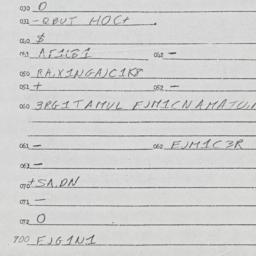 030 O
031 - QBUT HOCt .
040 $
041 AF1C61 042 -
050 RA.X1NGA)C1K8
051 + 052 -
060 3RG1TAMUL FJM1CNAMATU
061 - 062 FJM1C3R
063 -
070 +SA.DN
071 -
072 O
700 FJG1N1